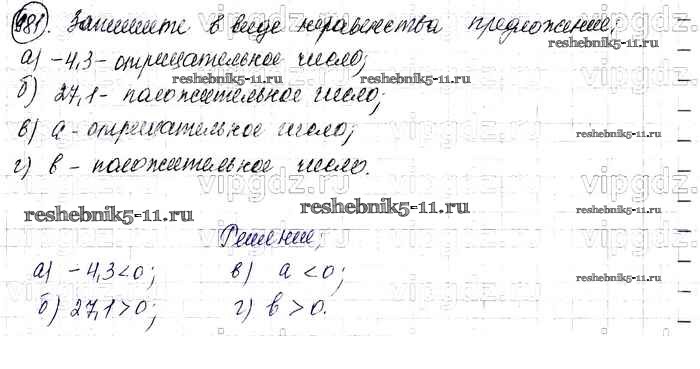 981. Запишите в виде неравенства предложение:
а) -4,3 - отрицательное число;
reshebnik5-11.ru reshebnik5-11.ru
vipgdz.ru vipgdz.ru
б) 27,1 - положительное число;
в) a - отрицательное число;
reshebnik5-11.ru
г) b - положительное число.
vipgdz.ru vipgdz.ru
reshebnik5-11.ru reshebnik5-11.ru
Решение:
vipgdz.ru vipgdz.ru
а) -4,3 < 0; в) a < 0;
reshebnik5-11.ru
б) 27,1 > 0; г) b > 0.
vipgdz.ru vipgdz.ru